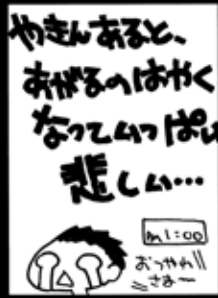 やきんあると、
おわがるのはやく
なっていっぱい
悲しい…
AM1:00
おつかれ
さまー